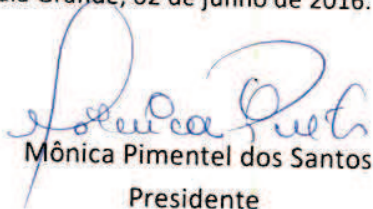 Grande, 02 de junho de 2016.
Mônica Pimentel dos Santos
Presidente